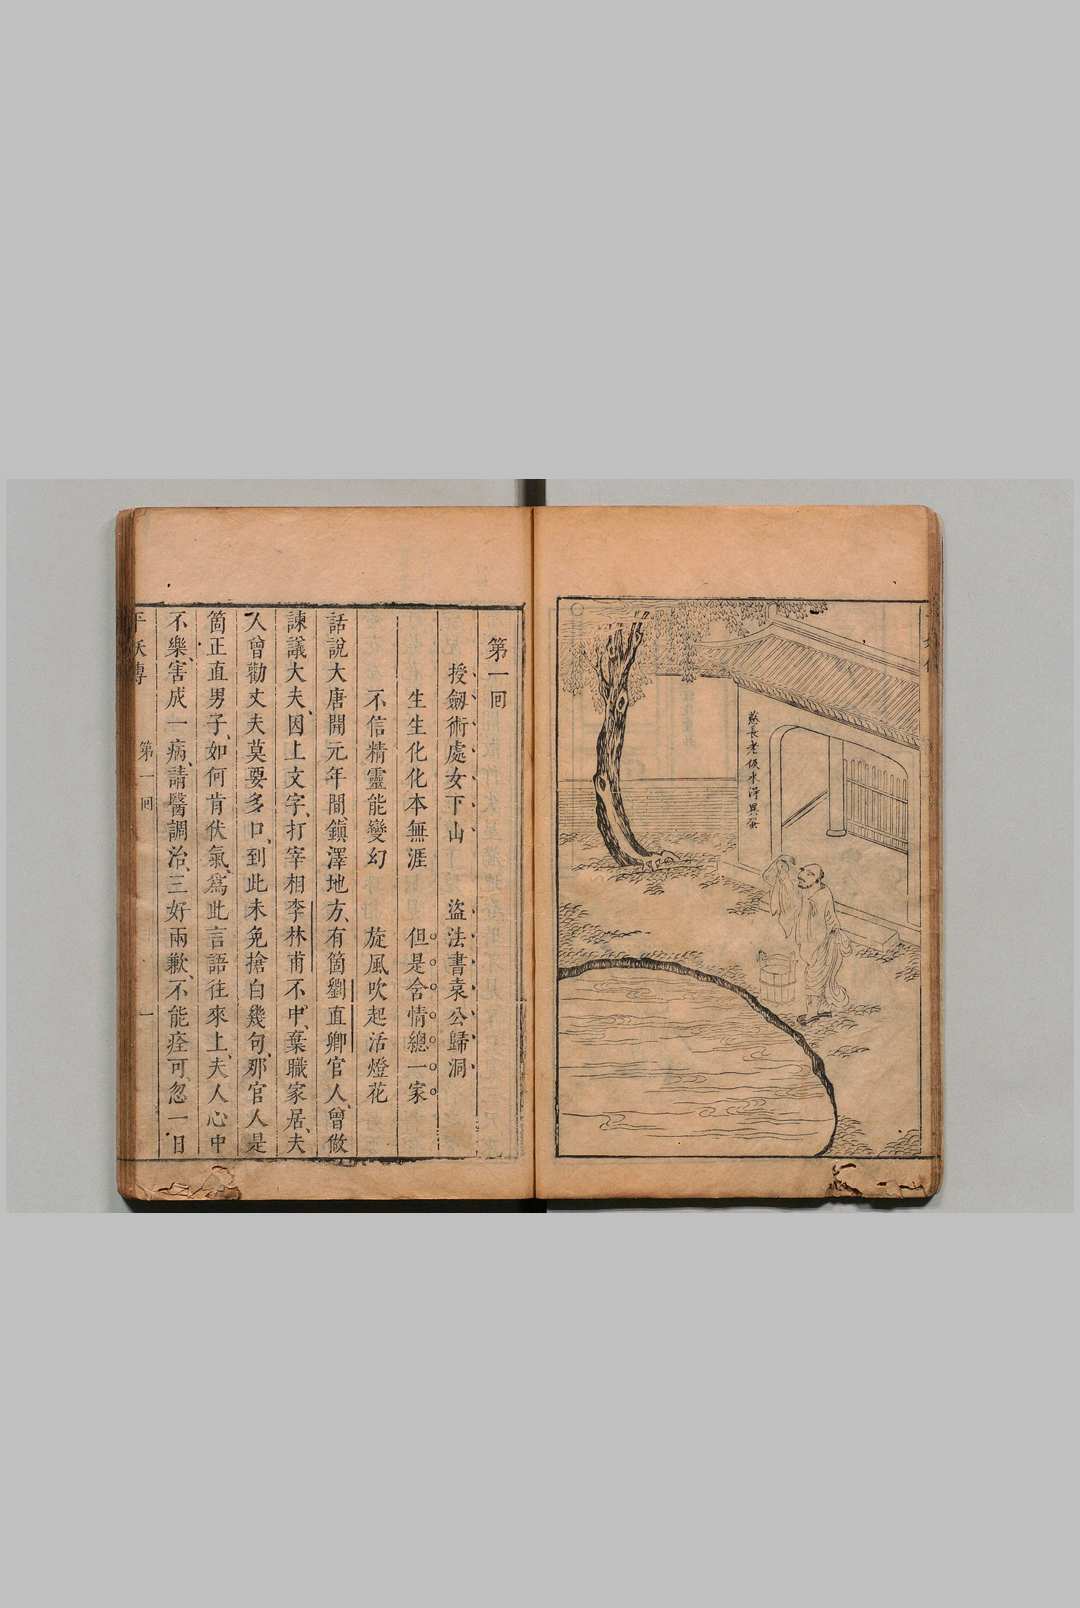 慈長老汲水得異蛋
第一回
授劔術處女下山　盜法書袁公歸洞
生生化化本無涯　但是含情總一家
不信精靈能變幻　旋風吹起活燈花
話說大唐開元年間、鎮澤地方、有箇劉直卿官人、曾做
諫議大夫、因上文字、打宰相李林甫不中、棄職家居、夫
人曾勸丈夫莫要多口、到此未免搶白幾句、那官人是
箇正直男子、如何肯伏氣、爲此言語往來上、夫人心中
不樂、害成一病、請醫調治、三好兩歉、不能痊可、忽一日
平妖傳　第一回　一